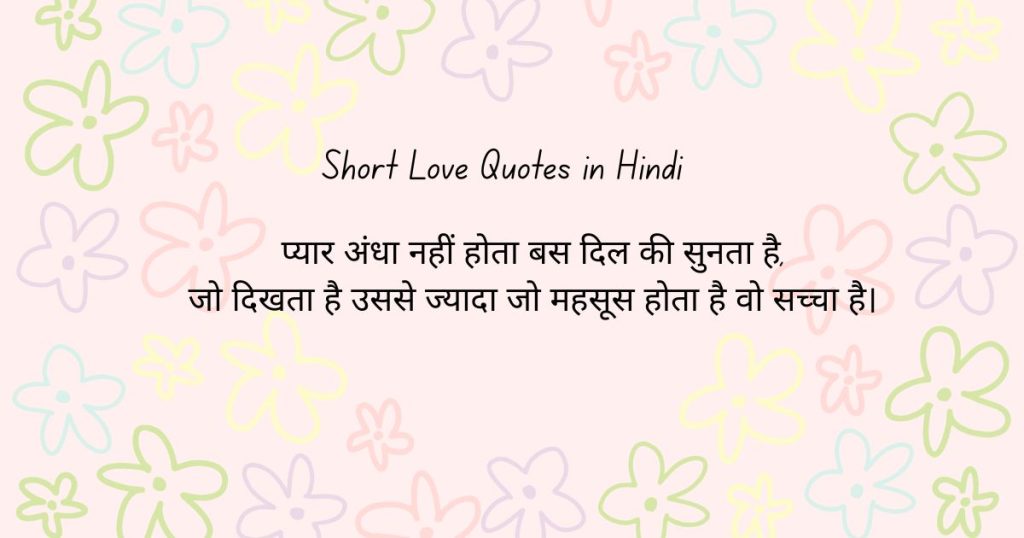 Short Love Quotes in Hindi
प्यार अंधा नहीं होता बस दिल की सुनता है,
जो दिखता है उससे ज्यादा जो महसूस होता है वो सच्चा है।